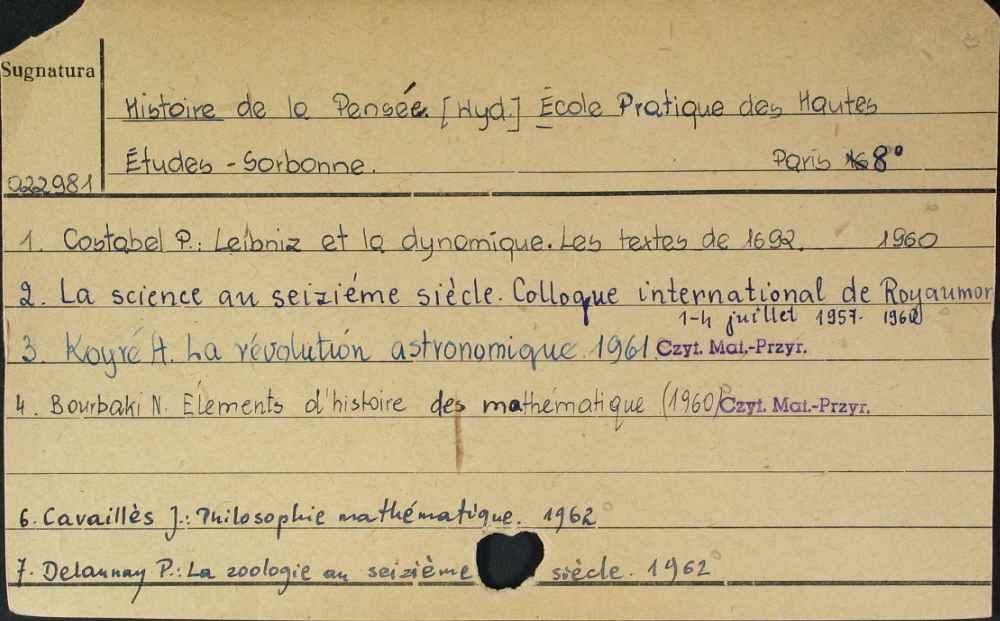 Sugnatura
Histoire de la Pensée. [Wyd.] École Pratique des Hautes
Études - Sorbonne. Paris 8°
022981
1. Costabel P.: Leibniz et la dynamique. Les textes de 1692. 1960
2. La science au seiziéme siècle. Colloque international de Royaumon
1-4 juillet 1957. 1960
3. Koyré A. La révolution astronomique. 1961 Czyt. Mat.-Przyr.
4. Bourbaki N. Élements d'histoire des mathématique (1960) Czyt. Mat.-Przyr.
6. Cavaillès J.: Philosophie mathématique. 1962
7. Delaunay P.: La zoologie au seizième siècle. 1962